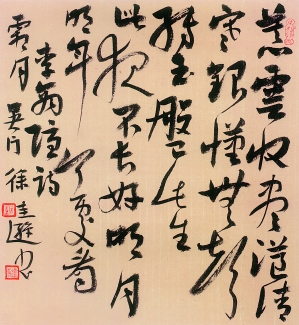 暮雲收盡溢清
寒銀漢無聲
轉玉盤此生
此夜不長好明月
明年何處看
李商隱詩
霜月 吴门 徐圭